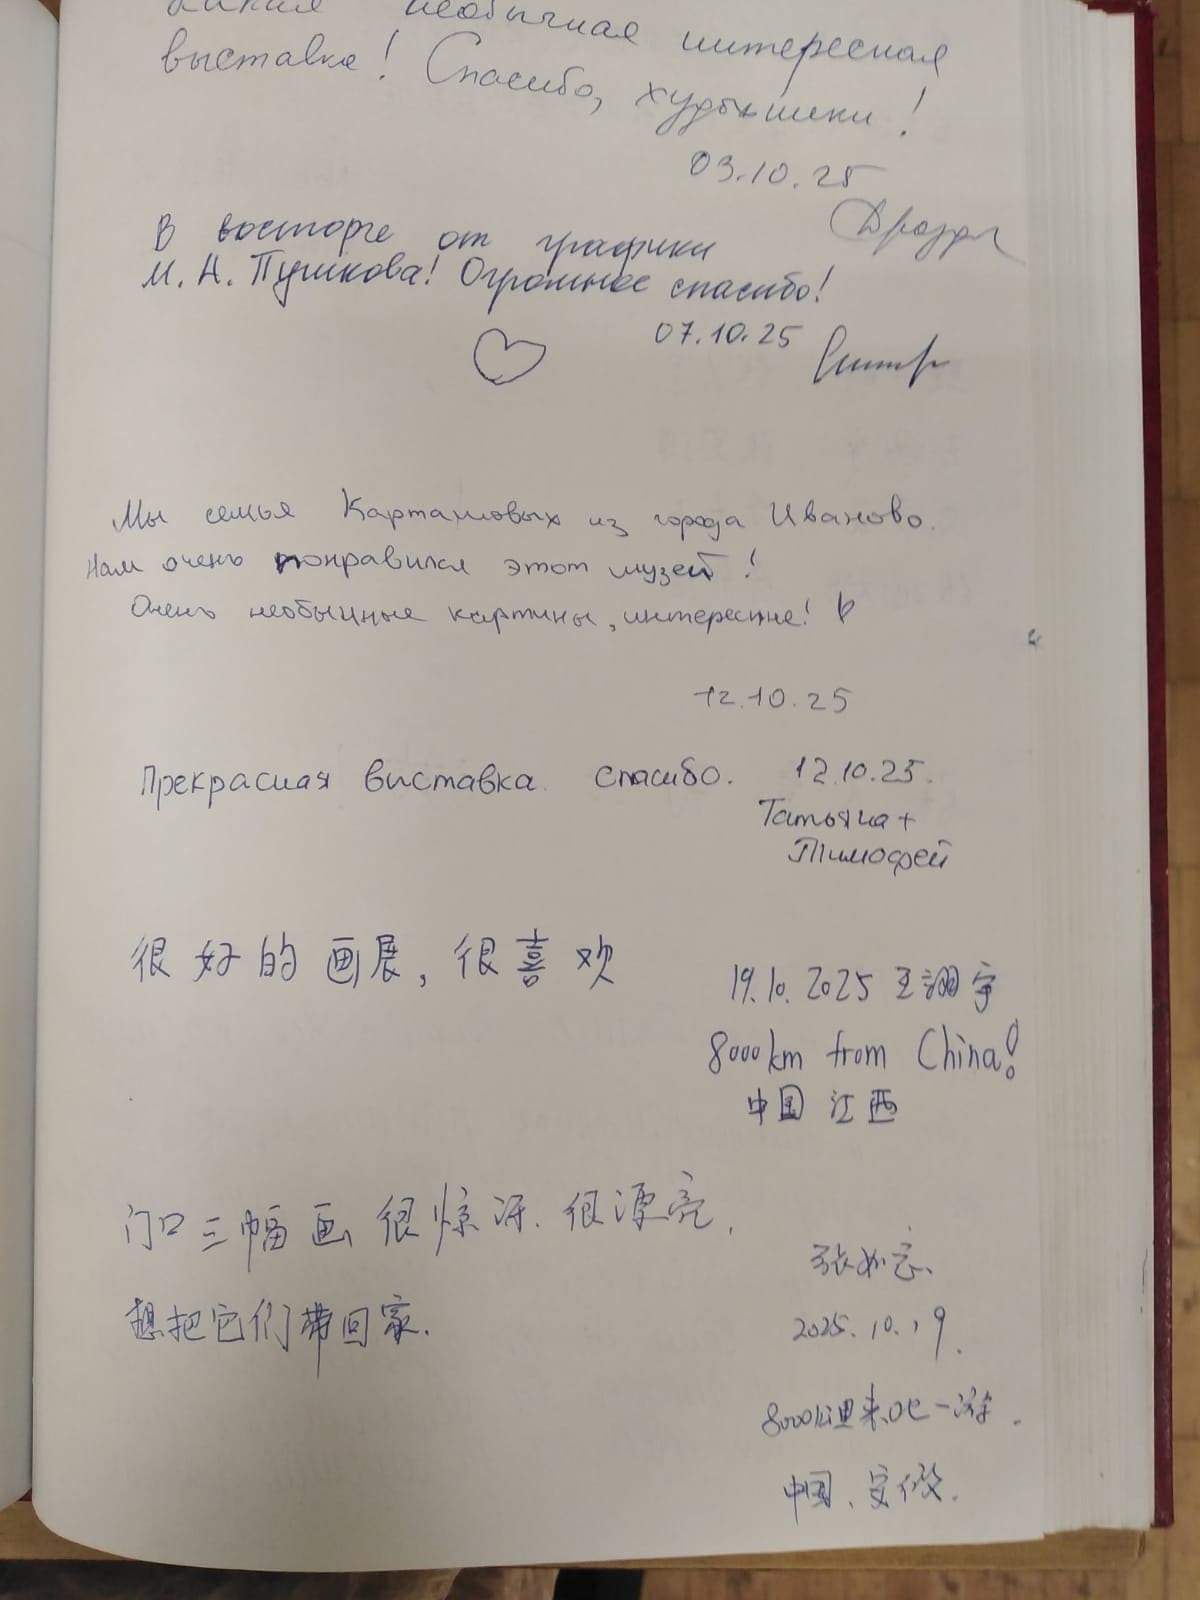 необычная интересная
выставка! Спасибо, художники!
03.10.25
В восторге от графики
М. Н. Пушкова! Огромное спасибо!
07.10.25
Мы семья Карташовых из города Иваново.
Нам очень понравился этот музей!
Очень необычные картины, интересные!
12.10.25
Прекрасная выставка. спасибо. 12.10.25.
Татьяна+
Тимофей
很好的画展，很喜欢
19.10.2025 王诩宇
8000km from China!
中国 江西
门口三幅画很惊讶.很漂亮.
想把它们带回家.
张如意
2025.10.19.
8000公里来此一游.
中国、安徽.